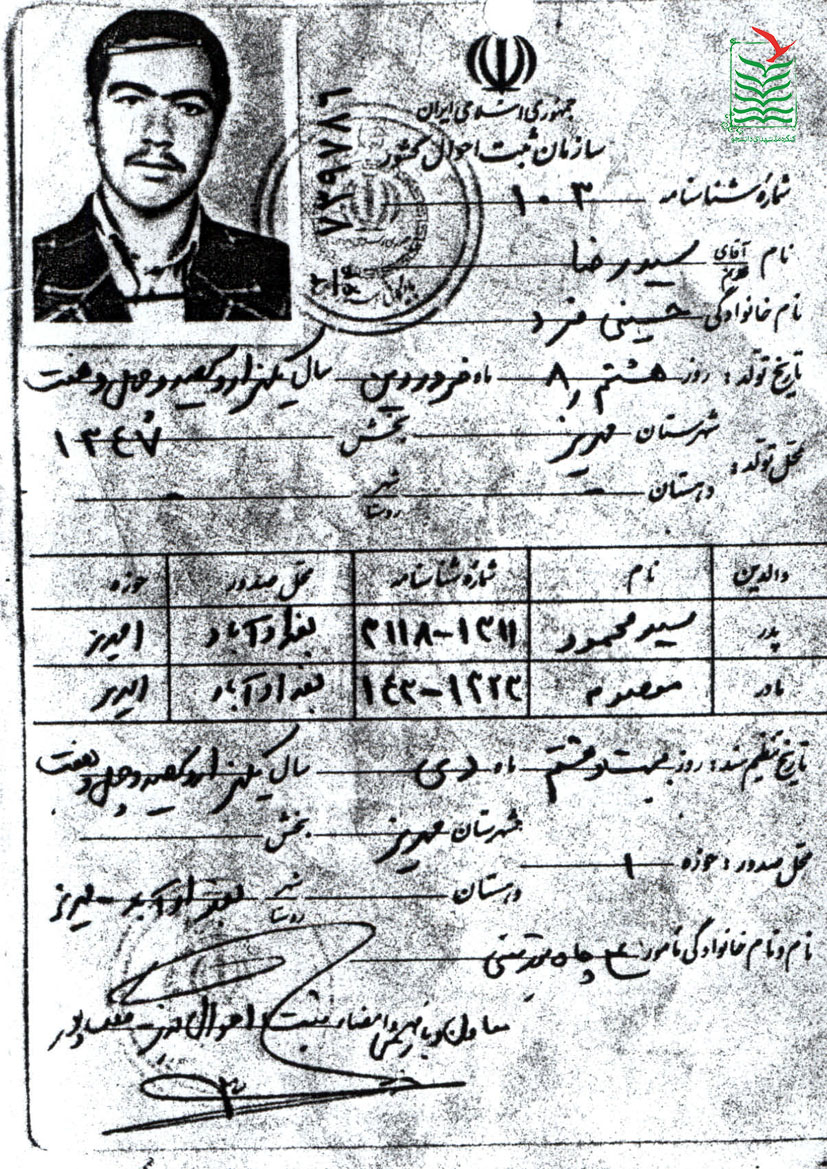 جمهوری اسلامی ایران
سازمان ثبت احوال کشور
۷۲۹۷۸۶
شمارهٔ شناسنامه ۱۰۳
نام آقای سیدرضا
نام خانوادگی حسینی فرد
تاریخ تولد: روز هشتم ۸ ماه فروردین سال یکهزار و سیصد و چهل و هفت
۱۳۴۷
محل تولد: شهرستان مهریز بخش
دهستان - شهر روستا -
والدین نام شمارهٔ شناسنامه محل صدور حوزه
پدر سیدمحمود بغدادآباد ۱ مهریز
مادر معصومه بغدادآباد ۱ مهریز
تاریخ تنظیم سند: روز بیست و هشتم ماه دی سال یکهزار و سیصد و چهل و هفت
محل صدور: حوزه ۱ شهرستان مهریز بخش
دهستان شهر روستا بغدادآباد - مهریز
نام و نام خانوادگی مأمور
ثبت احوال مهریز